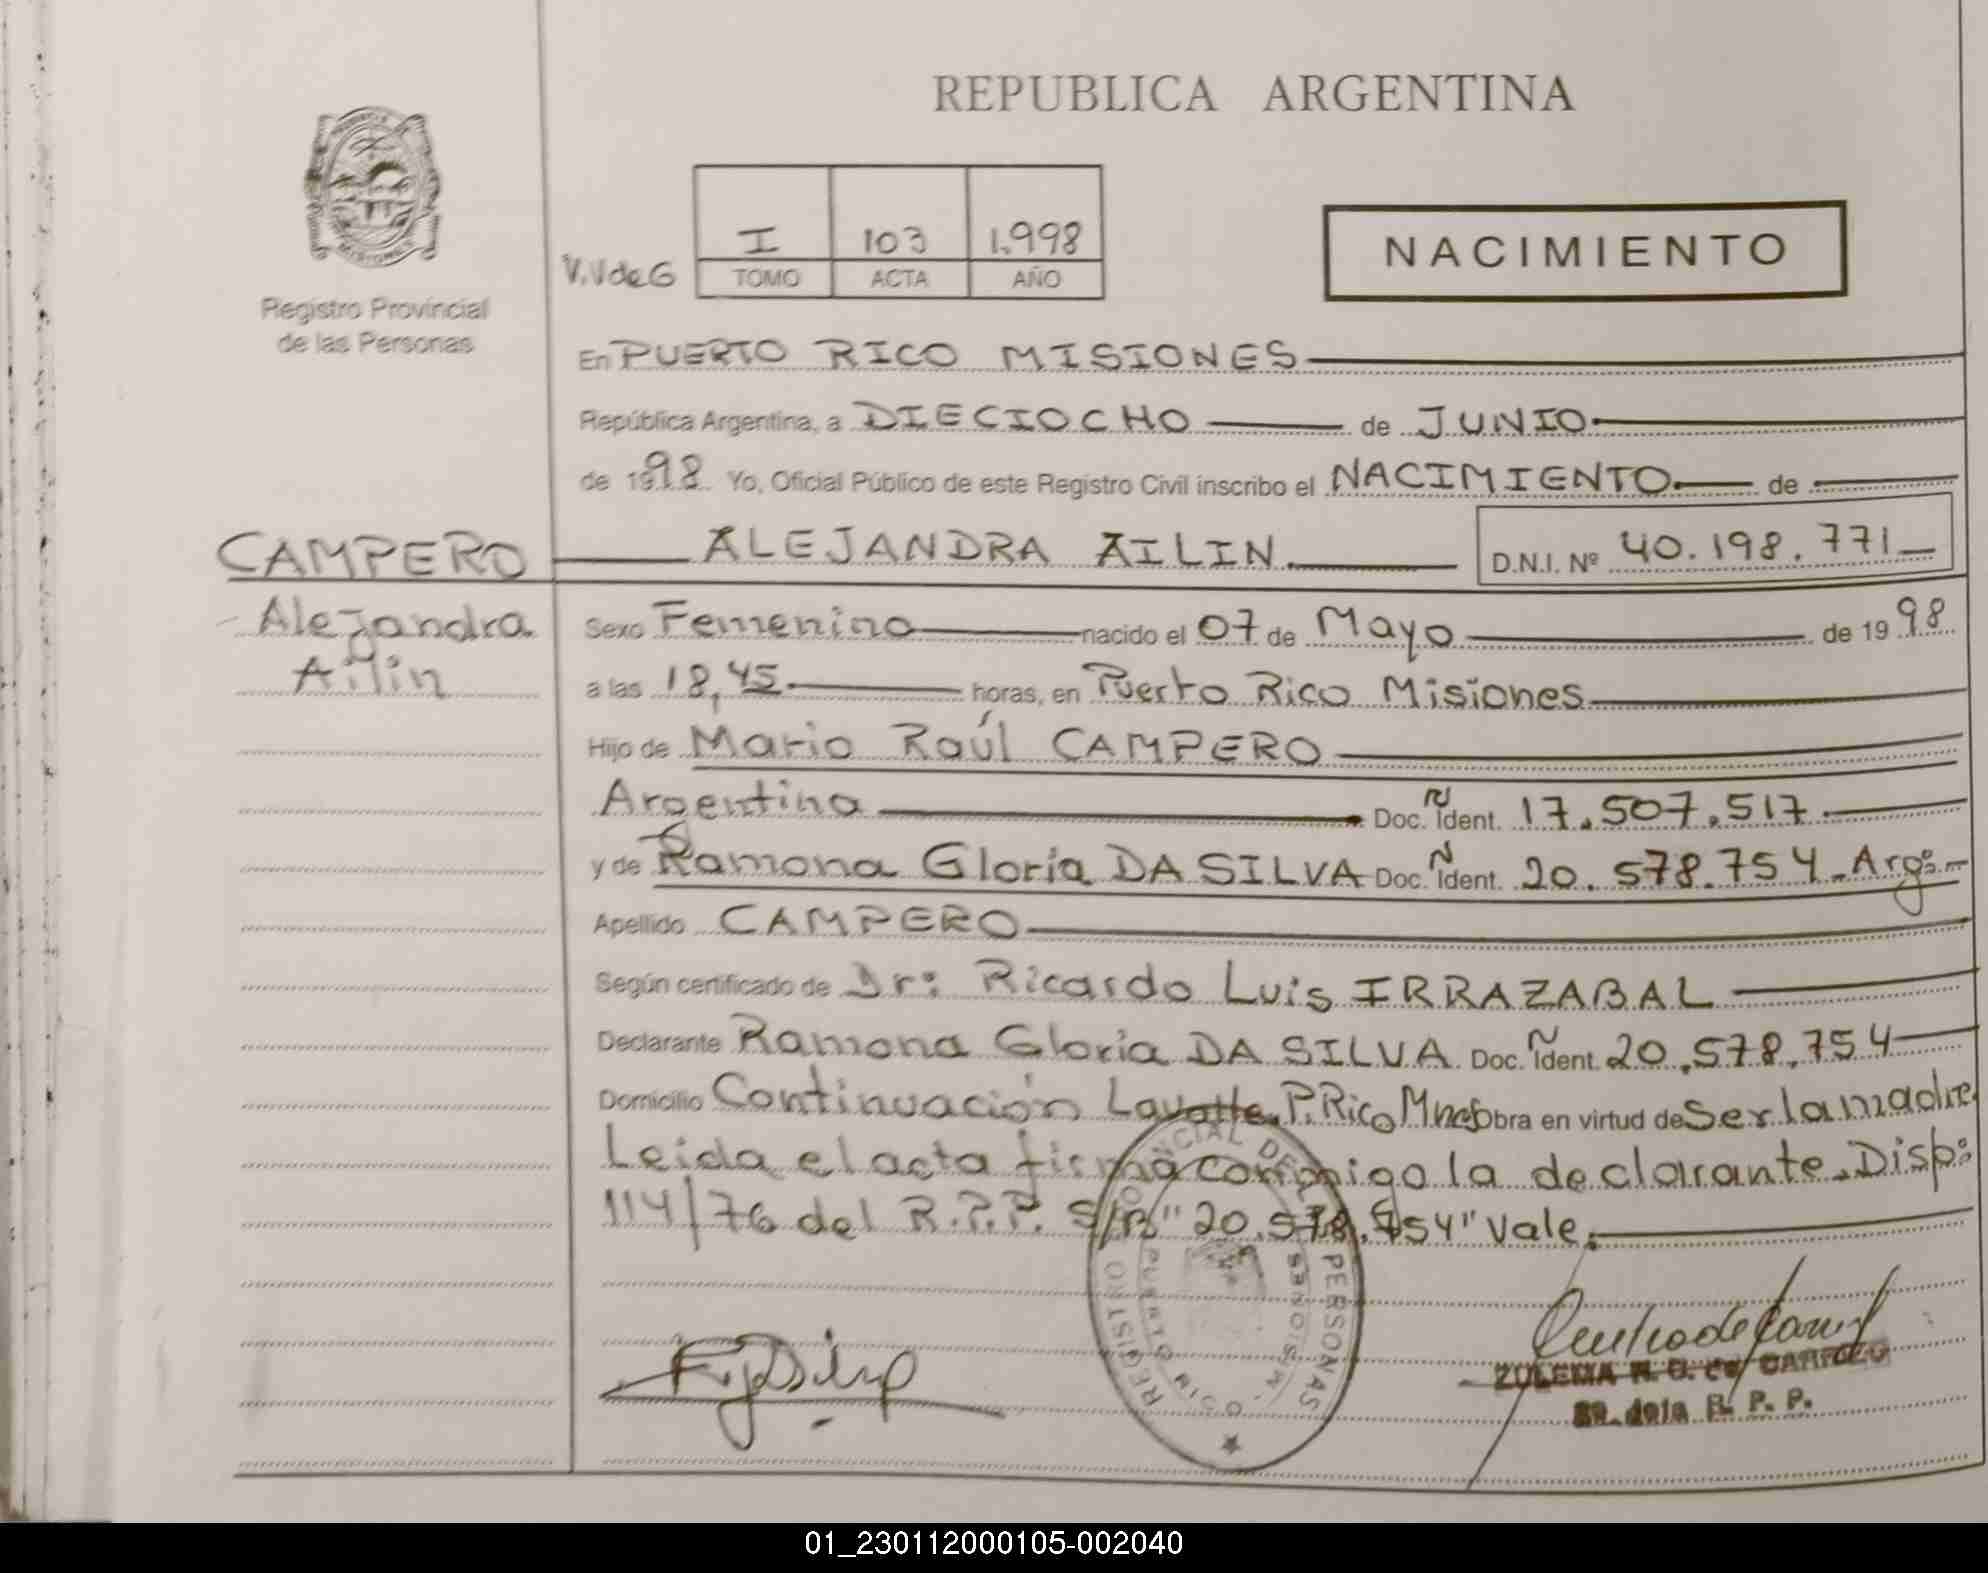 REPUBLICA ARGENTINA
Registro Provincial
de las Personas
V.V de G
I 103 1.998
TOMO ACTA AÑO
NACIMIENTO
En PUERTO RICO MISIONES
República Argentina, a DIECIOCHO de JUNIO
de 1998 Yo, Oficial Público de este Registro Civil inscribo el NACIMIENTO de
CAMPERO ALEJANDRA AILIN. D.N.I. Nº 40.198.771
Alejandra
Ailin
Sexo Femenino nacido el 07 de Mayo de 1998
a las 18,45 horas, en Puerto Rico Misiones
Hijo de Mario Raúl CAMPERO
Argentino Doc. Ident. 17.507.517
y de Ramona Gloria DA SILVA Doc. Ident. 20.578.754 Arg:
Apellido CAMPERO
Según certificado de Dr: Ricardo Luis IRRAZABAL
Declarante Ramona Gloria DA SILVA Doc. Ident. 20.578.754
Domicilio Continuación P.Rico Mnes Obra en virtud de Ser la madre
Leida el acta firma conmigo la declarante. Disp:
114/76 del R.P.P. S/R "20.578.754" Vale.
REGISTRO PROVINCIAL DE LAS PERSONAS
PUERTO RICO - MISIONES
ZULEMA N. O. de
R. P. P.
01_230112000105-002040